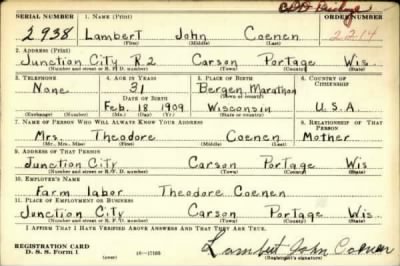 SERIAL NUMBER 1. NAME (Print) ORDER NUMBER
2938 Lambert John Coenen 2214
(First) (Middle) (Last)
2. ADDRESS (Print)
Junction City R2 Carson Portage Wis.
(Number and street or R. F. D. number) (Town) (County) (State)
3. TELEPHONE 4. AGE IN YEARS 5. PLACE OF BIRTH 6. COUNTRY OF CITIZENSHIP
None 31 Bergen Marathon
DATE OF BIRTH (Town or county)
Feb. 18 1909 Wisconsin U.S.A.
(Exchange) (Number) (Mo.) (Day) (Yr.) (State or country)
7. NAME OF PERSON WHO WILL ALWAYS KNOW YOUR ADDRESS 8. RELATIONSHIP OF THAT PERSON
Mrs. Theodore Coenen Mother
(Mr., Mrs., Miss) (First) (Middle) (Last)
9. ADDRESS OF THAT PERSON
Junction City Carson Portage Wis
(Number and street or R. F. D. number) (Town) (County) (State)
10. EMPLOYER'S NAME
Farm labor Theodore Coenen
11. PLACE OF EMPLOYMENT OR BUSINESS
Junction City Carson Portage Wis
(Number and street or R. F. D. number) (Town) (County) (State)
I AFFIRM THAT I HAVE VERIFIED ABOVE ANSWERS AND THAT THEY ARE TRUE.
REGISTRATION CARD
D. S. S. Form 1 (over) Lambert John Coenen
(Registrant's signature)